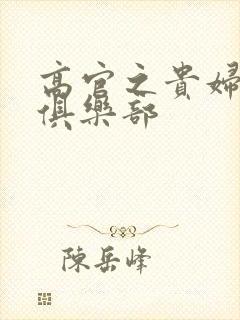 高官之貴婦
俱樂部
陳岳峰